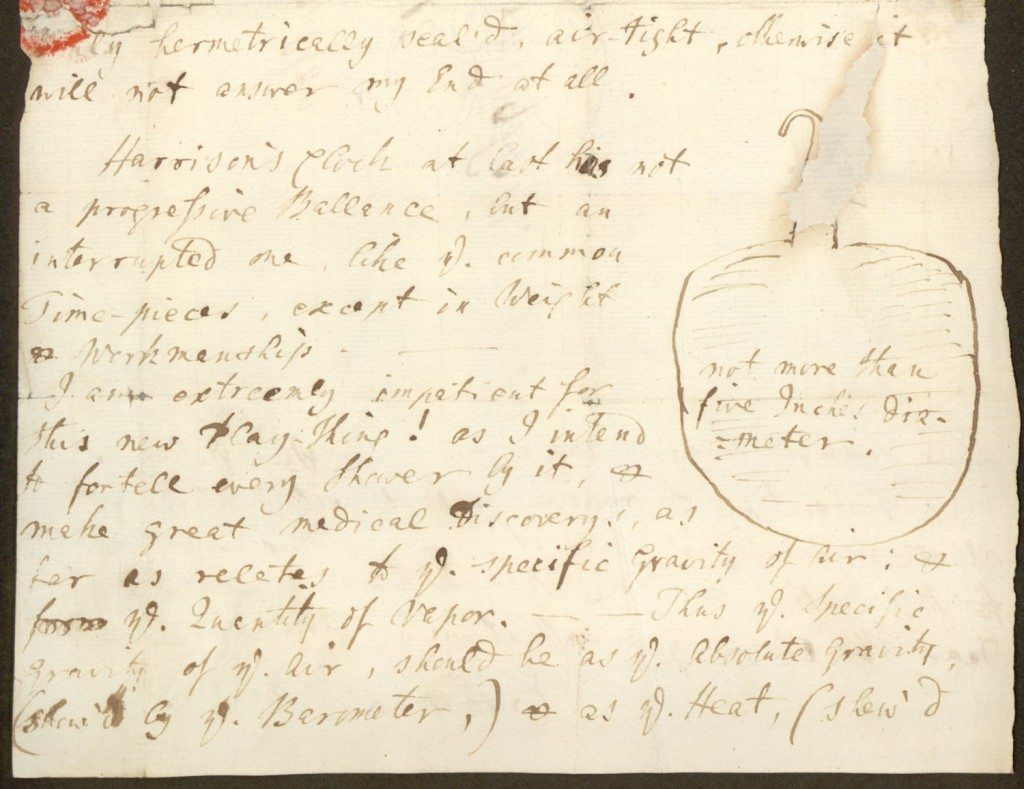 ly hermetrically seal'd, air-tight, otherwise it
will not answer my End at all.
Harrison's Clock at last has not
a progressive Ballance, but an
interrupted one, like ye. common
Time-pieces, except in Weight
& Workmanship.
I am extreemly impatient for
this new Play-Thing! as I intend
to fortell every Shower by it, &
make great medical Discoverys, as
far as reletes to ye. specific Gravity of Air; &
from ye. Quantity of Vapor. — — Thus ye. Specific
gravity of ye. Air, should be as ye. Absolute gravity,
(shew'd by ye. Barometer,) & as ye. Heat, (shew'd
not more than
five Inches Dia-
-meter.